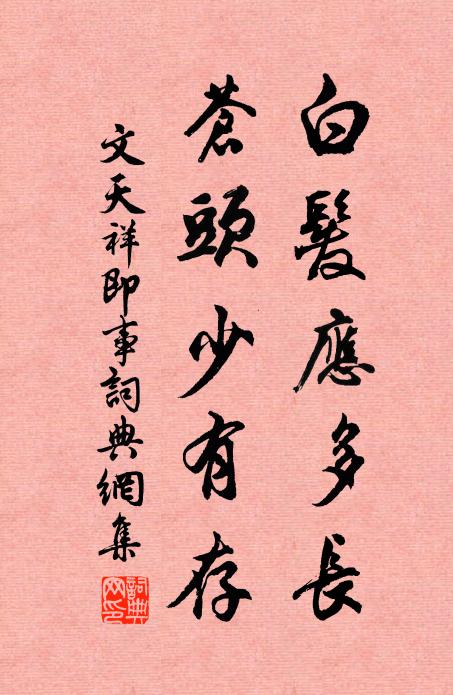 白髮應多長
蒼頭少有存
文天祥即事詞典網集
詞典網印